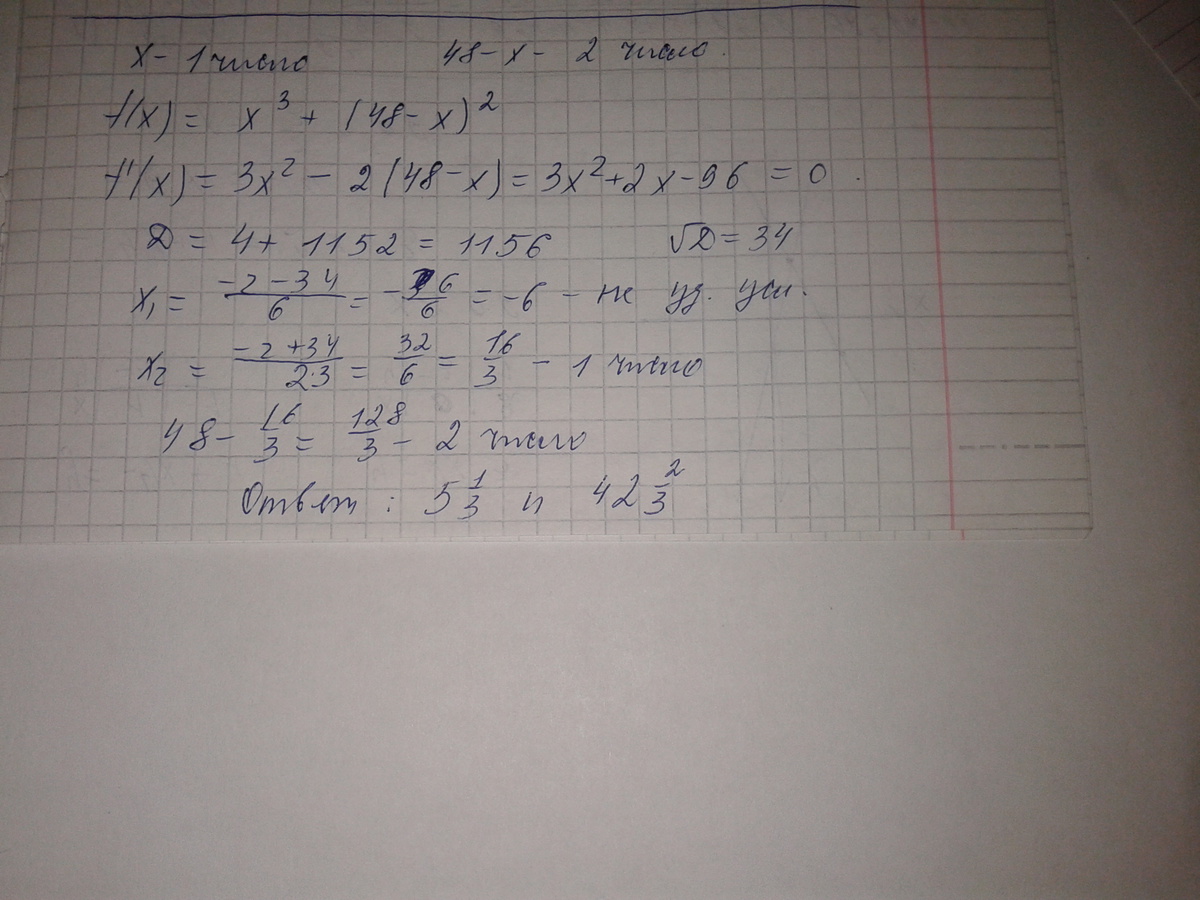 x – 1 число 48 – x – 2 число.
f(x) = x³ + (48 – x)²
f'(x) = 3x² – 2(48 – x) = 3x² + 2x – 96 = 0.
D = 4 + 1152 = 1156 √D = 34
x₁ = (–2 – 34)/6 = –36/6 = –6 – не уд. усл.
x₂ = (–2 + 34)/(2·3) = 32/6 = 16/3 – 1 число
48 – 16/3 = 128/3 – 2 число
Ответ : 5 1/3 и 42 2/3